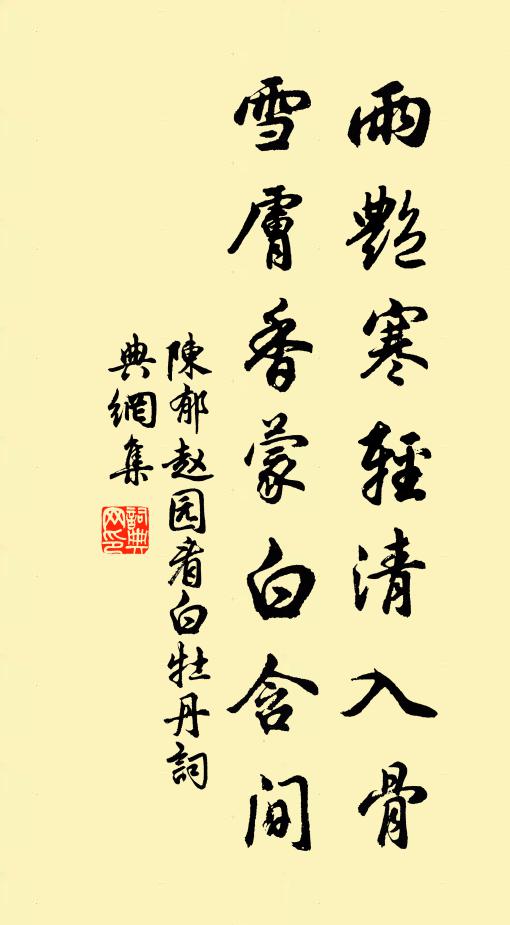 雨艷寒輕清入骨
雪膚香蒙白含間
陳郁赵园看白牡丹詞
典網集
詞典
网印